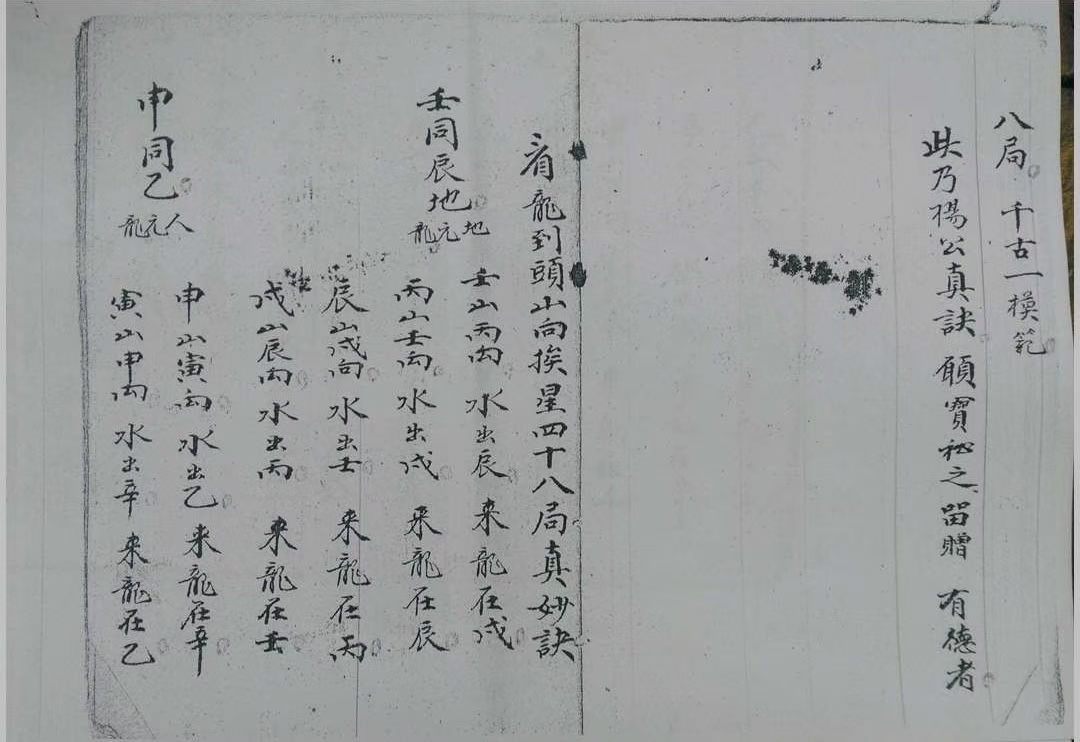 八局 千古一模範
此乃楊公真訣 願寶秘之 留贈 有德者
看龍到頭山向挨星四十八局真妙訣
壬同辰地 地元龍
壬山丙向 水出辰 来龍在戌
丙山壬向 水出戌 来龍在辰
辰山戌向 水出壬 来龍在丙
戌山辰向 水出丙 来龍在壬
申同乙 人元龍
申山寅向 水出乙 来龍在辛
寅山申向 水出辛 来龍在乙